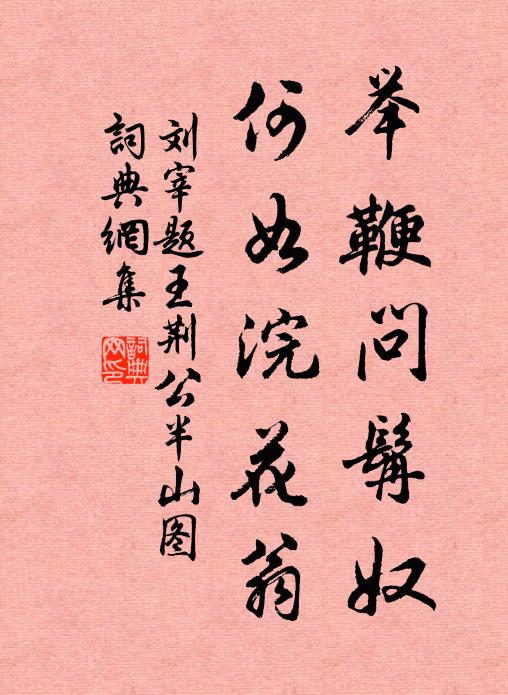 举鞭问髯奴
何如浣花翁
刘宰题王荆公半山图
詞典網集
詞典网印